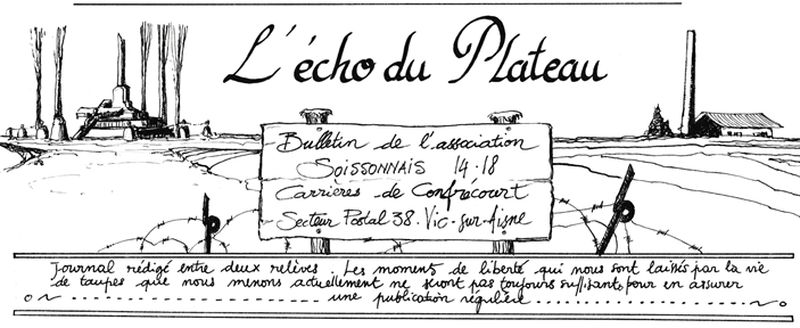 L'écho du Plateau
Bulletin de l'association
SOISSONNAIS 14.18
Carrières de Confrécourt
Secteur Postal 38. Vic-sur-Aisne
Journal rédigé entre deux relèves. Les moments de liberté qui nous sont laissés par la vie
de taupes que nous menons actuellement ne seront pas toujours suffisants pour en assurer
une publication régulière